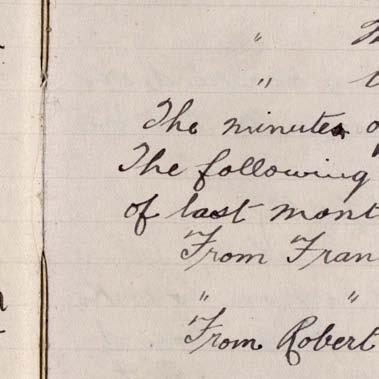 "
"
The minutes
The following
of last mont
From Fran
" "
From Robert